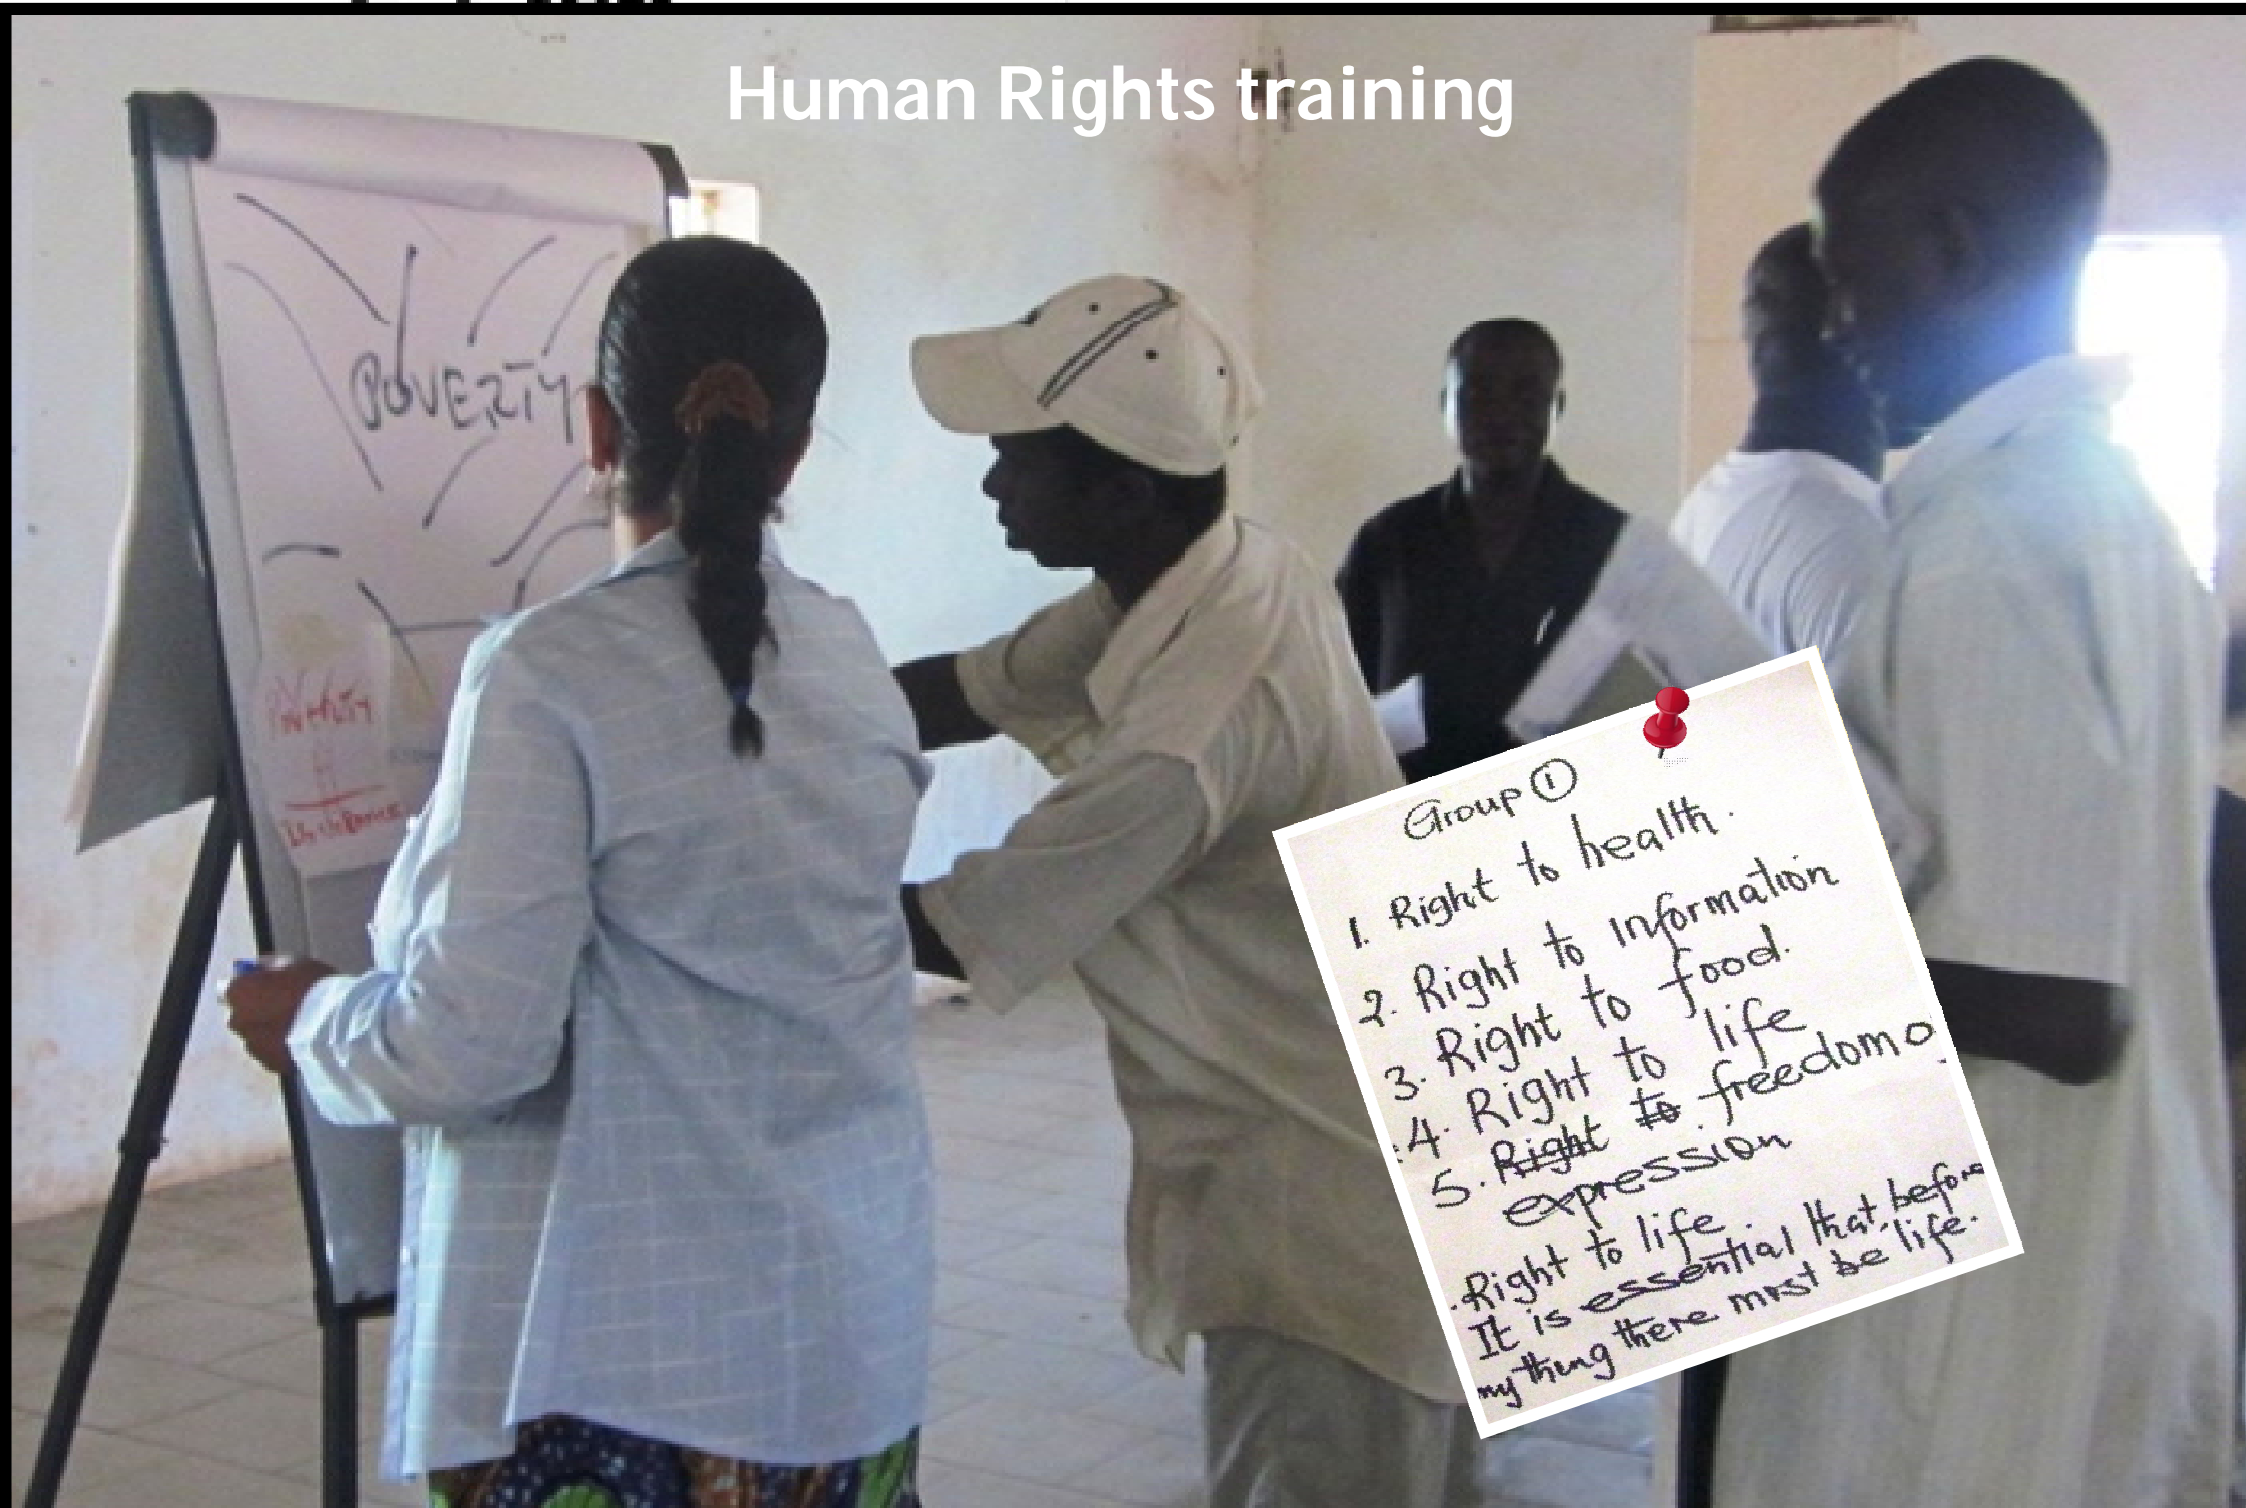 Human Rights training
POVERTY
POVERTY
Group ①
1. Right to health.
2. Right to information
3. Right to food.
4. Right to life
5. Right to freedom o
expression
. Right to life.
It is essential that, before
any thing there must be life.